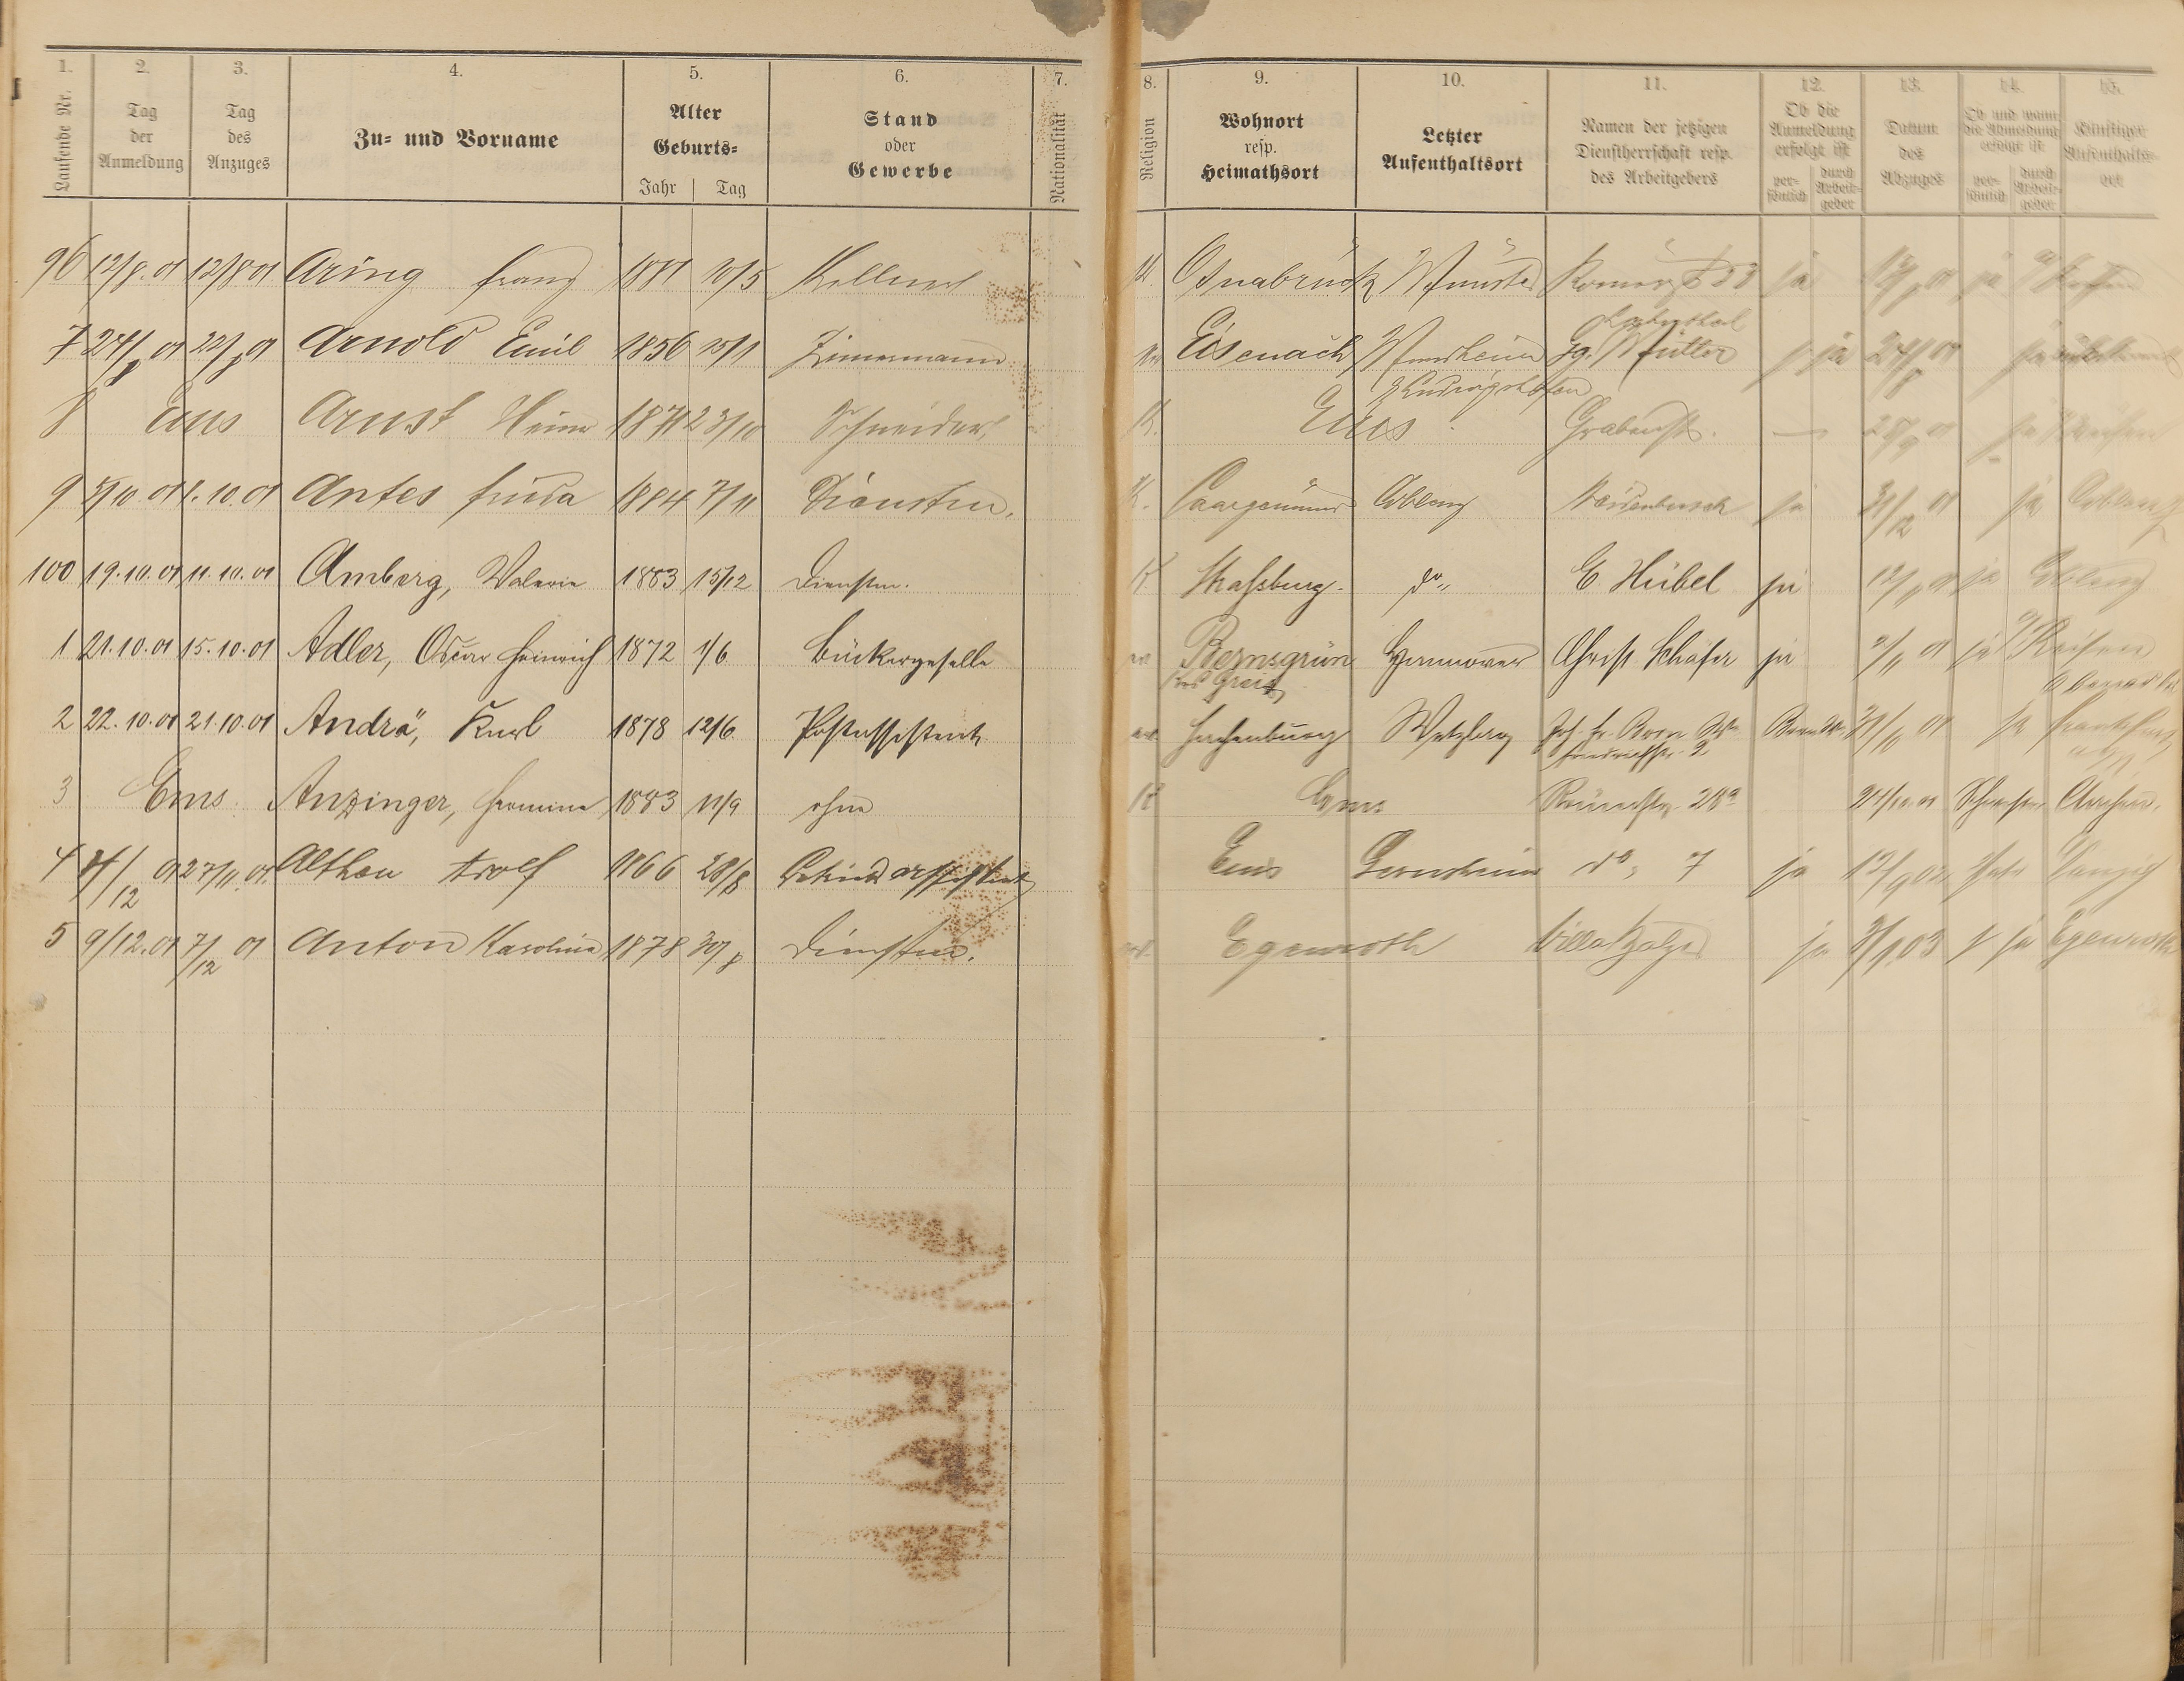 1. 2. 3. 4. 5. 6. 7. 8. 9. 10. 11. 12. 13. 14. 15.
Laufende Nr. Tag der Anmeldung Tag des Anzuges Zu= und Vorname Alter Geburts= Jahr Tag Stand oder Gewerbe Nationalität Religion Wohnort resp. Heimathsort Letzter Aufenthaltsort Namen der jetzigen Dienstherrschaft resp. des Arbeitgebers Ob die Anmeldung erfolgt ist per=sönlich durch Arbeit=geber Datum des Abzuges Ob und wann die Abmeldung erfolgt ist per=sönlich durch Arbeit=geber Künftiger Aufenthalts=ort
96 12/8. 01 12/8 01 Aring Franz 1881 10/5 Kellner K. Osnabrück Münster Römerstr 33 ja ja
7 24/8 01 22/8 01 Arnold Emil 1856 25/1 Zimmermann Eisenach Mannheim Gg. Müller ja 24/8 01 ja
z Ludwigshafen
8 Ems Arnst Heinr 1871 23/10 Schneider K. Ems Grabenstr. — 28/9 01 ja
9 1. 10. 01 Antes Frieda 1884 7/11 Dienstm. K. Saargemünd Coblenz Weidenbusch ja 31/12 01 ja Coblenz
100 19. 10. 01 11. 10. 01 Amberg, Valerie 1883 15/12 Dienstm. K Straßburg. do E. Hübel ja 12/11 01 ja Coblenz
1 21. 10. 01 15. 10. 01 Adler, Oscar Heinrich 1872 1/6 Bäckergeselle ev. Bernsgrün Hannover Christ Schäfer ja 2/11 01 ja Reisen
bei Greiz
2 22. 10. 01 21. 10. 01 Andrä, Karl 1878 12/6 Postassistent ev. Hachenburg Wetzlar Jos. Fr. Born Ww 01 ja
Friedrichstr. 2
3 Ems. Anzinger, Hermine 1883 11/9 ohne K Ems Römerstr. 28a 24/10. 01 Aachen.
4 4/12 01 27/11. 01. Althen Adolf 1866 28/8 Ems Gernsheim do 7 ja 12/9 02 Danzig
5 9/12. 01 7/12 01 Anton Karolina 1878 30/8 Dienstm. ev. Egenroth Villa Balzer ja 2/1 03 ja Egenroth